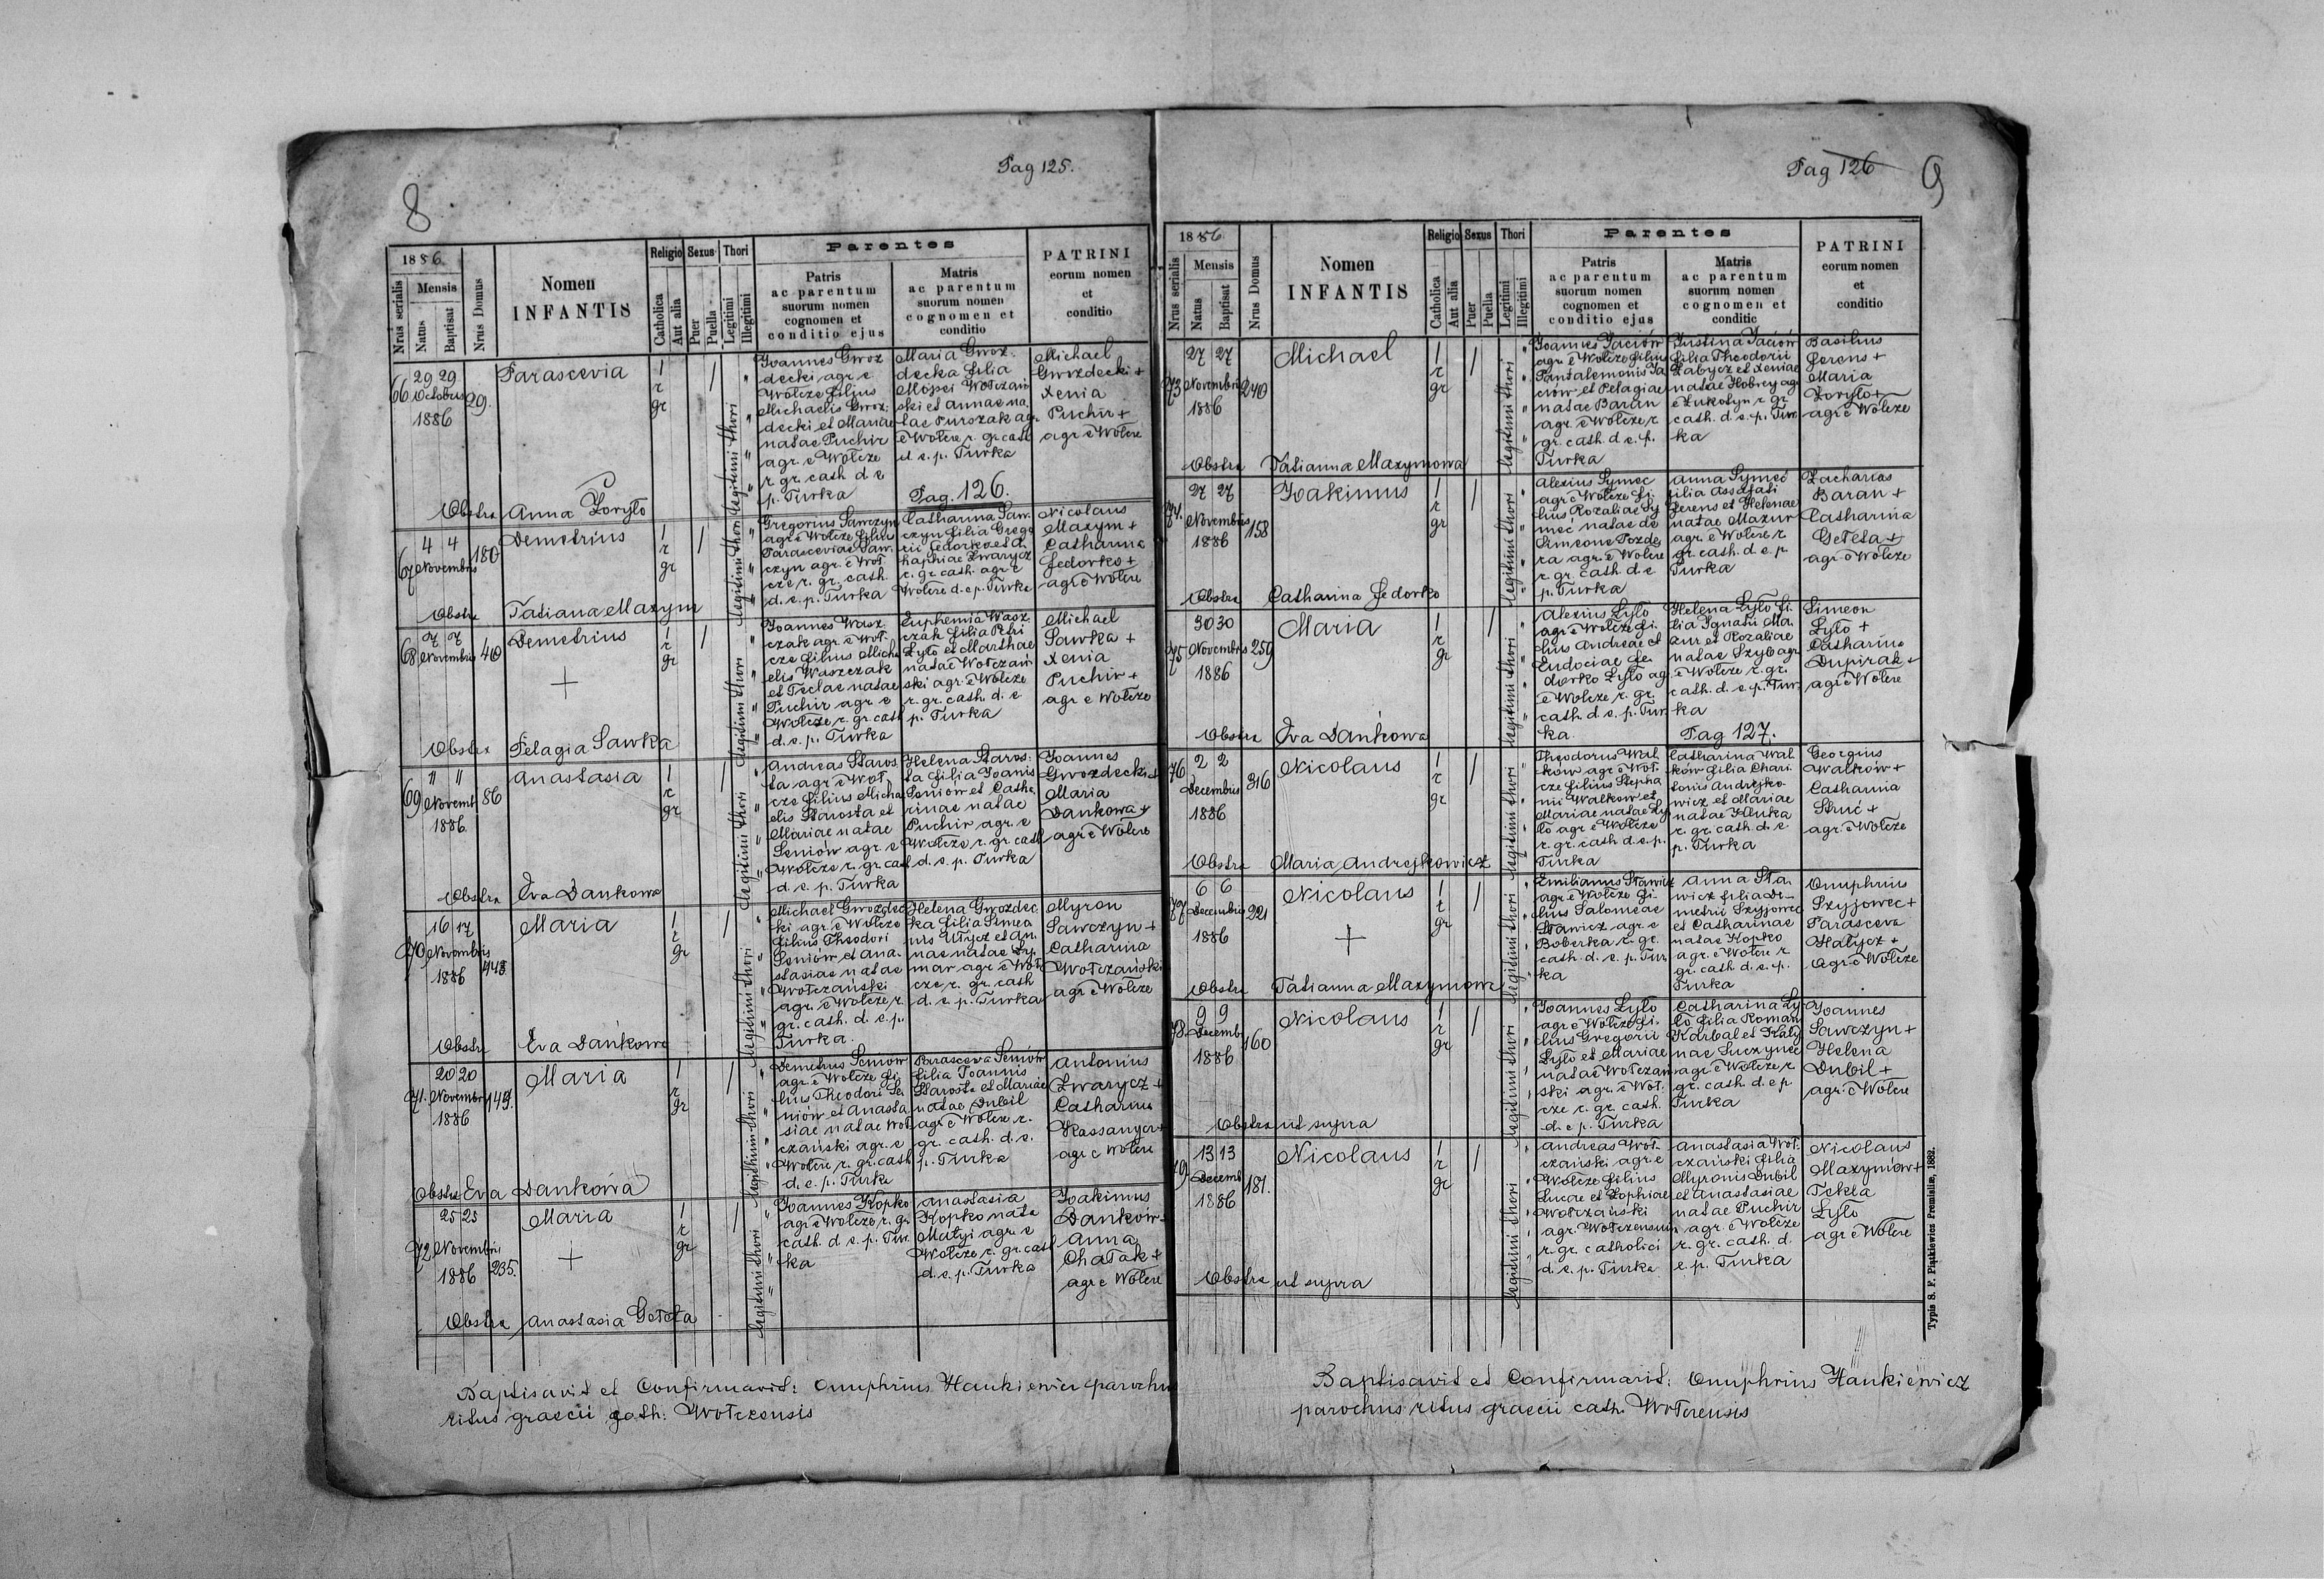 Pag 125.
8
1886.
Nrus serialis
Mensis
Natus
Baptisat
Nrus Domus
Nomen
INFANTIS
Religio
Catholica
Aut alia
Sexus
Puer
Puella
Thori
Legitimi
Illegitimi
Parentes
Patris
ac parentum
suorum nomen
cognomen et
conditio ejus
Matris
ac parentum
suorum nomen
cognomen et
conditio
PATRINI
eorum nomen
et
conditio
66
29 29
Octobris
1886
29.
Parascevia
1
r
gr
1
legitimi thori
Joannes Gwoz
decki agr e
Wołcze filius
Michaelis Gwoz-
decki et Mariae
natae Puchir
agr. e Wołcze
r gr. cath d e
p. Turka
Maria Gwoz.
decka filia
Mojsei Wołczań
ski et Annae na
tae Purszak agr
e Wołcze r. gr cath
d e. p. Turka
Pag. 126.
Michael
Gwozdecki +
Xenia
Puchir +
agr e Wołcze
Obstrx Anna Zoryło
67
4 4
Novembris
180
Demetrius
1
r
gr
1
legitimi thori
Gregorius Sawczyn
agr e Wołcze filius
Parasceviae Saw-
czyn agr. e Woł
cze r. gr. cath.
d. e. p. Turka
Catharina Saw.
czyn filia Grego
rii Fedorko et A.
haphiae Zwarycz
r. gr cath. agr e
Wołcze d. e p. Turka
Nicolaus
Maxym +
Catharina
Fedorko +
agr e Wołcze
Obstrx Tatiana Maxym
68
7 7
Novembris
40
Demetrius
+
1
r
gr
1
legitimi thori
Joannes Wasz.
czak agr e Woł.
cze filius Micha
elis Waszczak
et Teclae natae
Puchir agr e
Wołcze r. gr cath
d. e. p. Turka
Euphemia Wasz.
czak filia Petri
Zyło et Marthae
natae Wołczań
ski agr. e Wołcze
r. gr. cath. d. e
p. Turka
Michael
Sawka +
Xenia
Puchir +
agr e Wołcze
Obstrx Pelagia Sawka
69
" "
Novemb
1886.
86
Anastasia
1
r
gr
1
legitimi thori
Andreas Staros.
ta agr e Woł.
cze filius Micha
elis Starosta et
Mariae natae
Seniów agr e
Wołcze r. gr. cath
d. e. p. Turka
Helena Staros.
ta filia Joanis
Seniów et Catha.
rinae natae
Puchir agr. e
Wołcze r. gr cath
d. e. p. Turka
Joannes
Gwozdecki +
Maria
Dankowa +
agr e Wołcze
Obstrx Eva Dankowa
70
16 17
Novembris
1886
Maria
1
r
gr
1
legitimi thori
Michael Gwozdec
ki agr. e Wołcze
filius Theodori
Seniów et Ana.
stasiae natae
Wołczański
agr. e Wołcze r.
gr. cath. d. e. p.
Turka.
Helena Gwozdec.
ka filia Simeo
nis Ułycz et An.
nae natae
mar agr e Woł
cze r. gr. cath
d. e. p. Turka
Myron
Sawczyn +
Catharina
Wołczański
agr e Wołcze
Obstrx Eva Dankowa
71.
20 20
Novembr
1886
149.
Maria
1
r
gr
1
legitimi thori
Demetrius Seniów
agr. e Wołcze fi.
lius Theodori Se
niów et Anasta
siae natae Woł
czański agr. e
Wołcze r. gr. cath
d. e. p. Turka
Parasceva Seniów
filia Joannis
Starosta et Mariae
natae Dubil
agr e Wołcze r.
gr. cath. d. e.
p. Turka
Antonius
Zwarycz +
Catharina
agr e Wołcze
Obstrx Eva Dankowa
72
25 25
Novembris
1886
235.
Maria
+
1
r
gr
1
legitimi thori
Joannes Kopko
agr e Wołcze r. gr
cath. d e. p. Tur.
ka
Anastasia
Kopko nata
Matyi agr. e
Wołcze r. gr cath
d. e. p. Turka
Joakimus
Dankow
Anna
Chałak +
agr e Wołcze
Obstrx Anastasia Gełeta
Baptisavit et Confirmavit: Onuphrius Hankiewicz parochus
ritus graecii cath. Wołczensis
Pag 126
9
1886
Nrus serialis
Mensis
Natus
Baptisat
Nrus Domus
Nomen
INFANTIS
Religio
Catholica
Aut alia
Sexus
Puer
Puella
Thori
Legitimi
Illegitimi
Parentes
Patris
ac parentum
suorum nomen
cognomen et
conditio ejus
Matris
ac parentum
suorum nomen
cognomen et
conditio
PATRINI
eorum nomen
et
conditio
73
27 27
Novembris
1886
240
Michael
1
r
gr
1
legitimi thori
Joannes Jaciów
agr. e Wołcze filius
Pantalemonis Ja
ciów et Pelagiae
natae Baran
agr. e Wołcze r
gr. cath. d e. p.
Turka
Justina Jaciów
filia Theodorii
Zabycz et Xeniae
natae Hobrey agr
e Łukotyn r gr
cath. d. e. p. Tur.
ka
Basilius
Ferens +
Maria
Zoryło +
agr e Wołcze
Obstrx Tatianna Maxymowa
74.
27 27
Novembris
1886
158
Joakimus
1
r
gr
1
legitimi thori
Alexius Symec
agr e Wołcze fi.
lius Rozaliae Sy
meć natae de
Simeone Pozde
ra agr. e Wołcze
r. gr. cath. d e
p. Turka
Anna Symeć
filia Assafati
Ferens et Helenae
natae Mazur
agr. e Wołcze r
gr. cath. d. e. p
Turka
Zacharias
Baran +
Catharina
Gełeta +
agr. e Wołcze
Obstrx Catharina Fedorko
75
30 30
Novembris
1886
259
Maria
1
r
gr
1
legitimi thori
Alexius Zyło
agr e Wołcze fi.
lius Andreae et
Eudociae Fe.
dorko Zyło agr
e Wołcze r. gr.
cath. d. e. p. Tur.
ka.
Helena Zyło fi.
lia Ignatii Ma.
zur et Rozaliae
natae Szyb agr
e Wołcze r. gr.
cath. d. e. p. Tur.
ka
Pag 127.
Simeon
Zyło +
Catharina
Dupirak +
agr e Wołcze
Obstrx Eva Dankowa
76
2 2
Decembris
1886
316
Nicolaus
1
r
gr
1
legitimi thori
Theodorus Wal.
ków agr e Woł.
cze filius Stepha
nii Walkow et
Mariae natae Zy.
ło agr e Wołcze
r gr. cath. d. e. p.
Turka
Catharina Wal
ków filia Chari.
tonis Andrejko.
wicz et Mariae
natae Hluka
r. gr. cath. d. e
p. Turka
Georgius
Walków +
Catharina
Struć +
agr. e Wołcze
Obstrx Maria Andrejkowicz
77
6 6
Decembris
1886
221
Nicolaus
+
1
r
gr
1
legitimi thori
Emilianus Stawicz
agr e Wołcze fi.
lius Salomeae
Stawicz agr. e
Boberka r. gr.
cath. d. e. p. Tur
ka
Anna Sta.
wicz filia De.
metrii Szyjowec
et Catharinae
natae Kopko
agr. e Wołcze r
gr. cath. d. e. p.
Turka
Onuphrius
Szyjowec +
Parasceva
Hałycz +
agr e Wołcze
Obstrx Tatianna Maxymowa
78.
9 9
Decembr
1886
160
Nicolaus
1
r
gr
1
legitimi thori
Joannes Zyło
agr e Wołcze fi.
lius Gregorii
Zyło et Mariae
natae Wołczań
ski agr. e Woł.
cze r. gr. cath.
d. e p. Turka
Catharina Zy
ło filia Romani
Karbal et Katy
nae Suczynec
agr e Wołcze r
gr. cath. d. e p
Turka
Joannes
Sawczyn +
Helena
Dubil +
agr. e Wołcze
Obstrx ut supra
79
13 13
Decemb
1886
181.
Nicolaus
1
r
gr
1
legitimi thori
Andreas Woł.
czański agr. e
Wołcze filius
Lucae et Zophiae
Wołczański
agr. Wołczensium
r. gr. catholici
d. e. p. Turka
Anastasia Woł.
czański filia
Myronis Dubil
et Anastasiae
natae Puchir
agr. e Wołcze
r. gr. cath. d.
e. p. Turka
Nicolaus
Maxymów +
Tekla
Zyło
agr e Wołcze
Obstrx ut supra
Baptisavit et Confirmavit: Onuphrius Hankiewicz
parochus ritus graecii cath. Wołczensis
Typis S. F. Piątkiewicz Premisliæ, 1882.